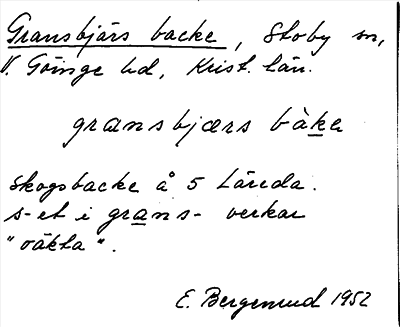 Gransbjärs backe, Stoby sn,
V. Göinge hd, Krist. län.
gransbjærs bàkə
Skogsbacke å 5 Läreda.
s-et i grans- verkar
"oäkta".
E. Bergenrud 1952